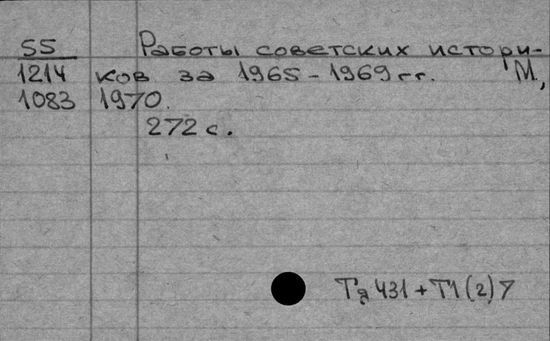 55 Работы советских истори-
1214 ков за 1965-1969 гг. М,
1083 1970.
272 с.
Тя 431 + Т1(2)7